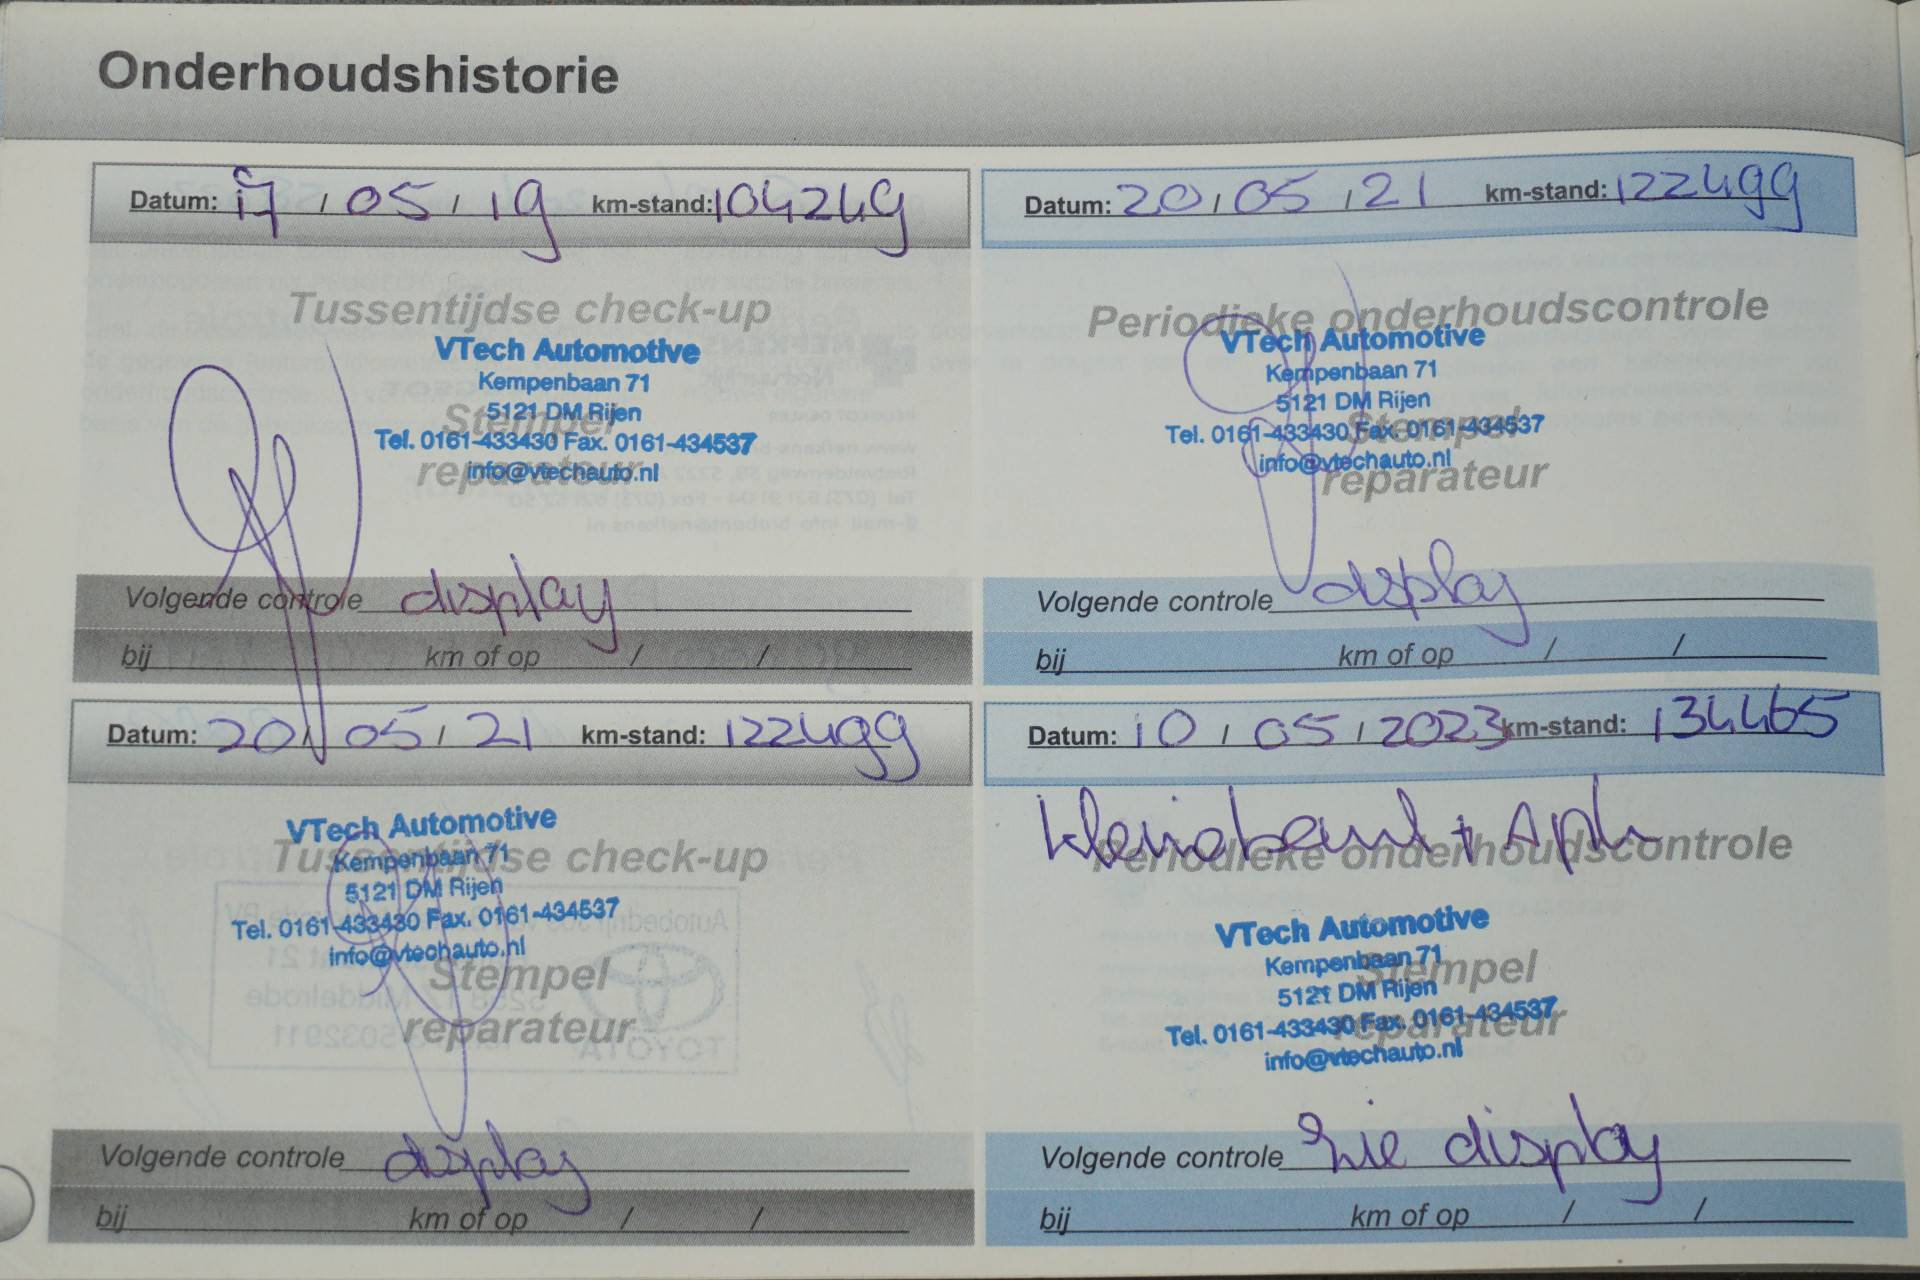 Onderhoudshistorie
Datum: 17 / 05 / 19 km-stand: 104249
Tussentijdse check-up
VTech Automotive
Kempenbaan 71
5121 DM Rijen
Stempel
Tel. 0161-433430 Fax. 0161-434537
reparateur
info@vtechauto.nl
Volgende controle display
bij km of op / /
Datum: 20 / 05 / 21 km-stand: 122499
Periodieke onderhoudscontrole
VTech Automotive
Kempenbaan 71
5121 DM Rijen
Stempel
Tel. 0161-433430 Fax. 0161-434537
info@vtechauto.nl
reparateur
Volgende controle display
bij km of op / /
Datum: 20 / 05 / 21 km-stand: 122499
VTech Automotive
Tussentijdse check-up
Kempenbaan 71
5121 DM Rijen
Tel. 0161-433430 Fax. 0161-434537
info@vtechauto.nl
Stempel
reparateur
Volgende controle display
bij km of op / /
Datum: 10 / 05 / 2023 km-stand: 134465
+ Apk
Periodieke onderhoudscontrole
VTech Automotive
Kempenbaan 71
Stempel
5121 DM Rijen
Tel. 0161-433430 Fax. 0161-434537
reparateur
info@vtechauto.nl
Volgende controle zie display
bij km of op / /